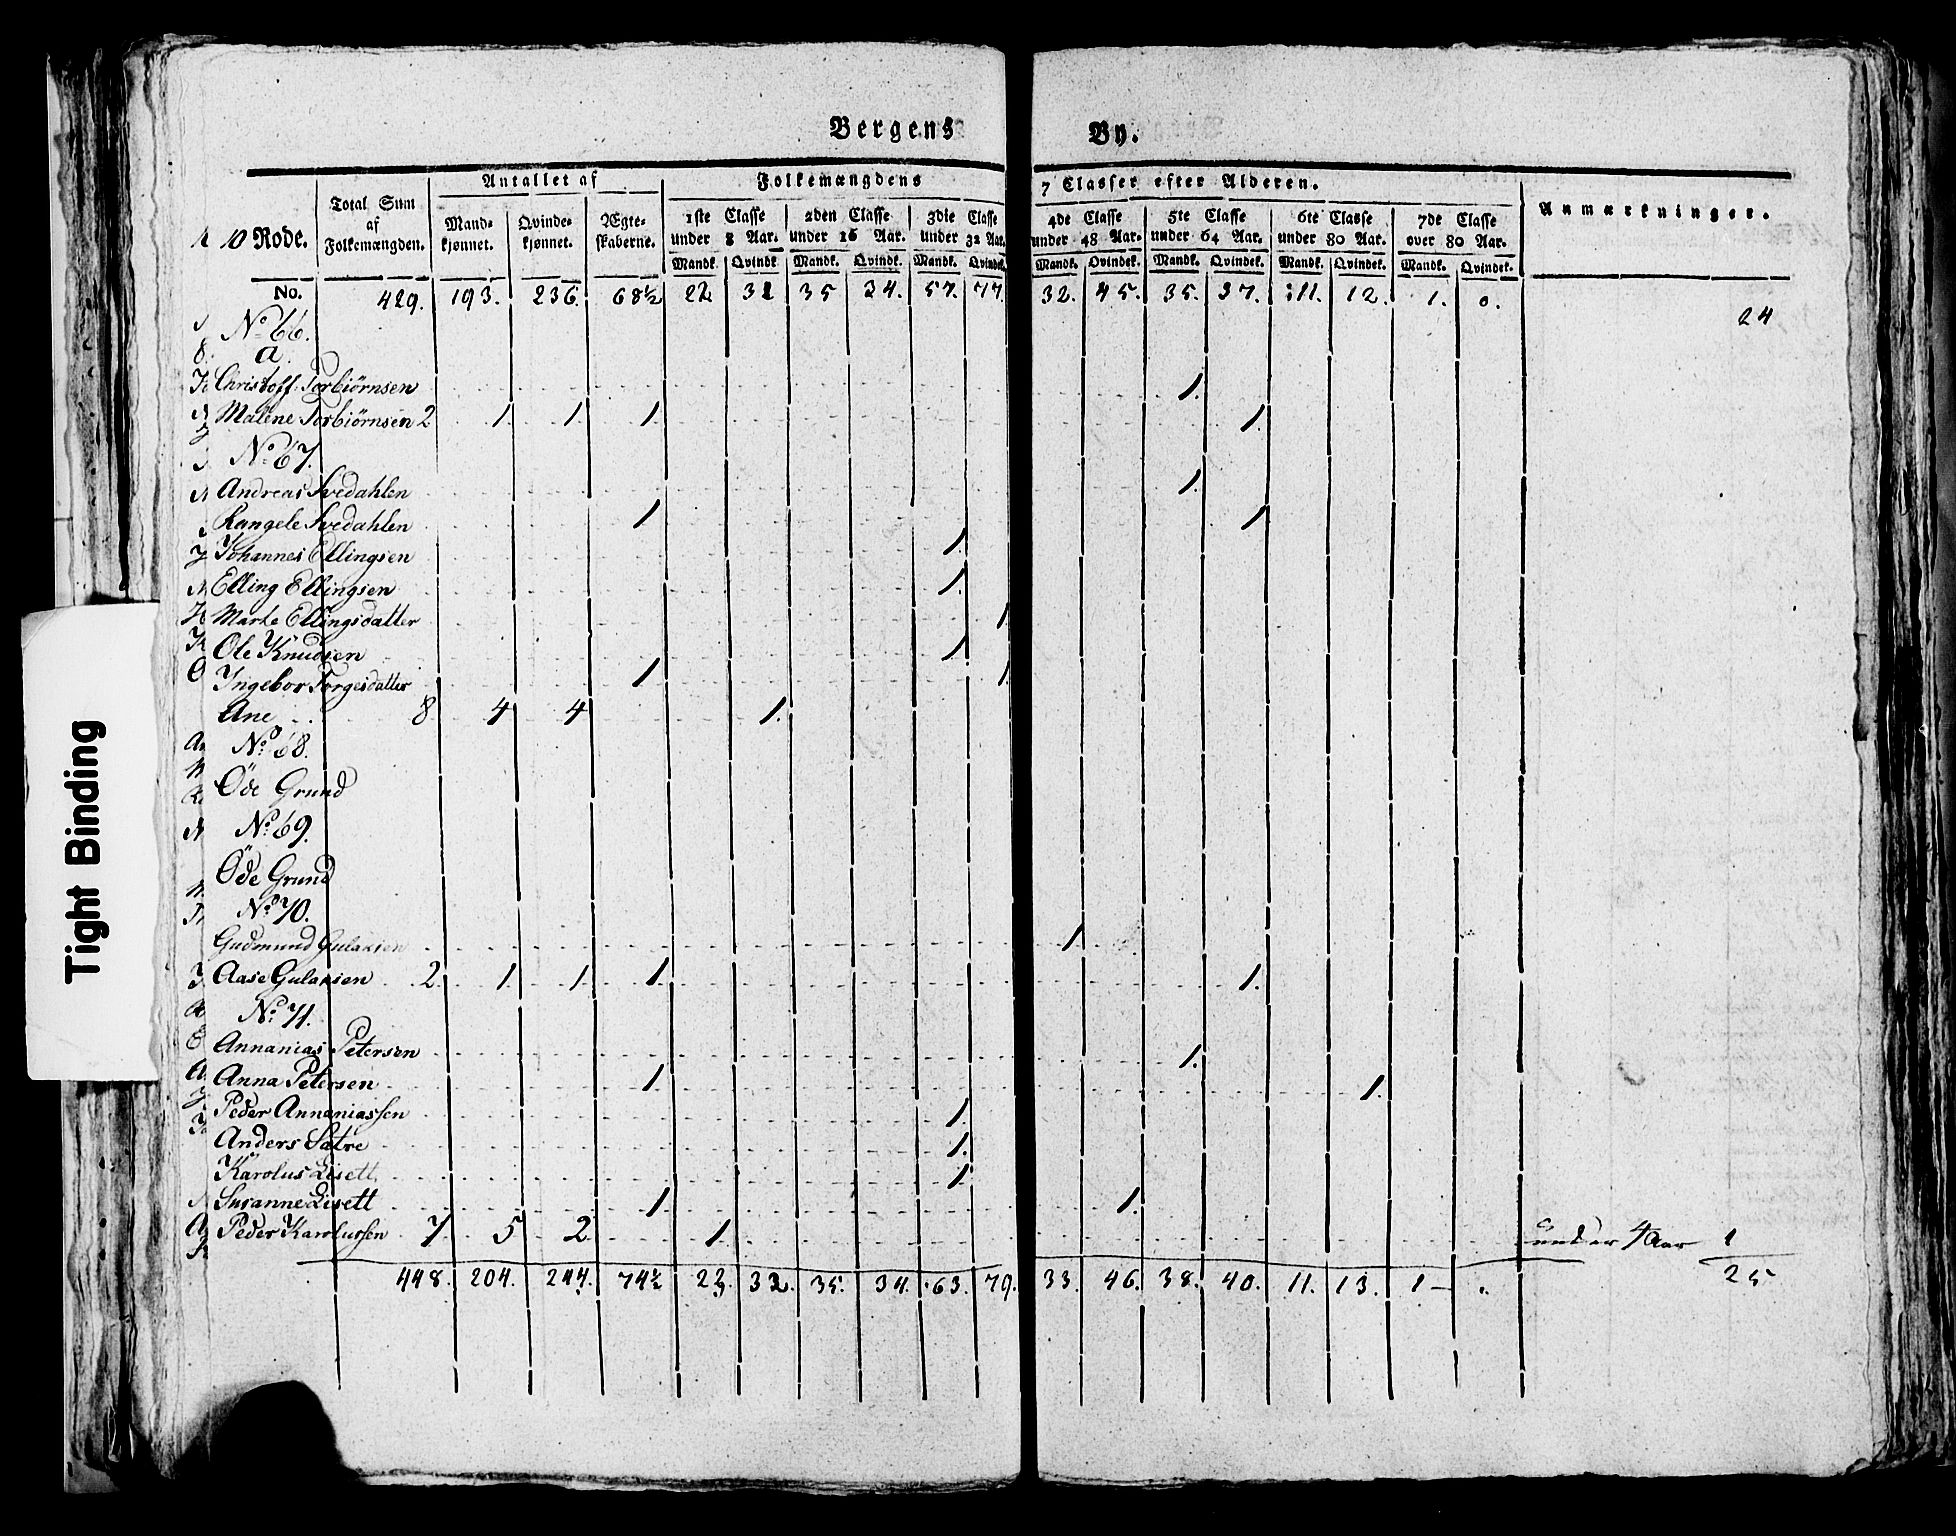 Bergens By.
10 Rode.
Total Sum af Folkemængden.
Antallet af
Mandkjønnet. Qvindekjønnet. Ægteskaberne.
Folkemængdens 7 Classer efter Alderen.
1ste Classe under 8 Aar. 2den Classe under 16 Aar. 3die Classe under 32 Aar. 4de Classe under 48 Aar. 5te Classe under 64 Aar. 6te Classe under 80 Aar. 7de Classe over 80 Aar.
Anmærkninger.
Mandk. Qvindk. Mandk. Qvindk. Mandk. Qvindek. Mandk. Qvindek. Mandk. Qvindek. Mandk. Qvindek. Mandk. Qvindek.
No. 429. 193. 236. 68½ 22 32 35 34. 57. 77. 32. 45. 35. 37. 11. 12. 1. 0.
24
No. 66.
a.
Christoff. Torbiörnsen 1.
Malene Torbiörnsen 2 1. 1. 1. 1.
No. 67.
Andreas Svedahlen 1.
Rangele Svedahlen 1 1
Johannes Ellingsen 1.
Elling Ellingsen 1.
Marte Ellingsdatter 1
Ole Knudsen 1
Ingebor Torgesdatter 1 1
Ane 8 4 4 1.
No. 68.
Öde Grund
No. 69.
Öde Grund
No. 70.
Gudmund Gulaksen 1
Aase Gulaksen 2 1 1 1 1.
No. 71.
Annanias Petersen 1.
Anna Petersen 1 1.
Peder Annaniassen 1.
Anders Sætre 1.
Karolus Lisett 1
Susanne Lisett 1 1.
Peder Karolussen 7 5 2 1 under 4 Aar 1
448. 204. 244. 74½ 23. 32. 35. 34. 63. 79. 33. 46. 38. 40. 11. 13. 1 — . 25
Tight Binding